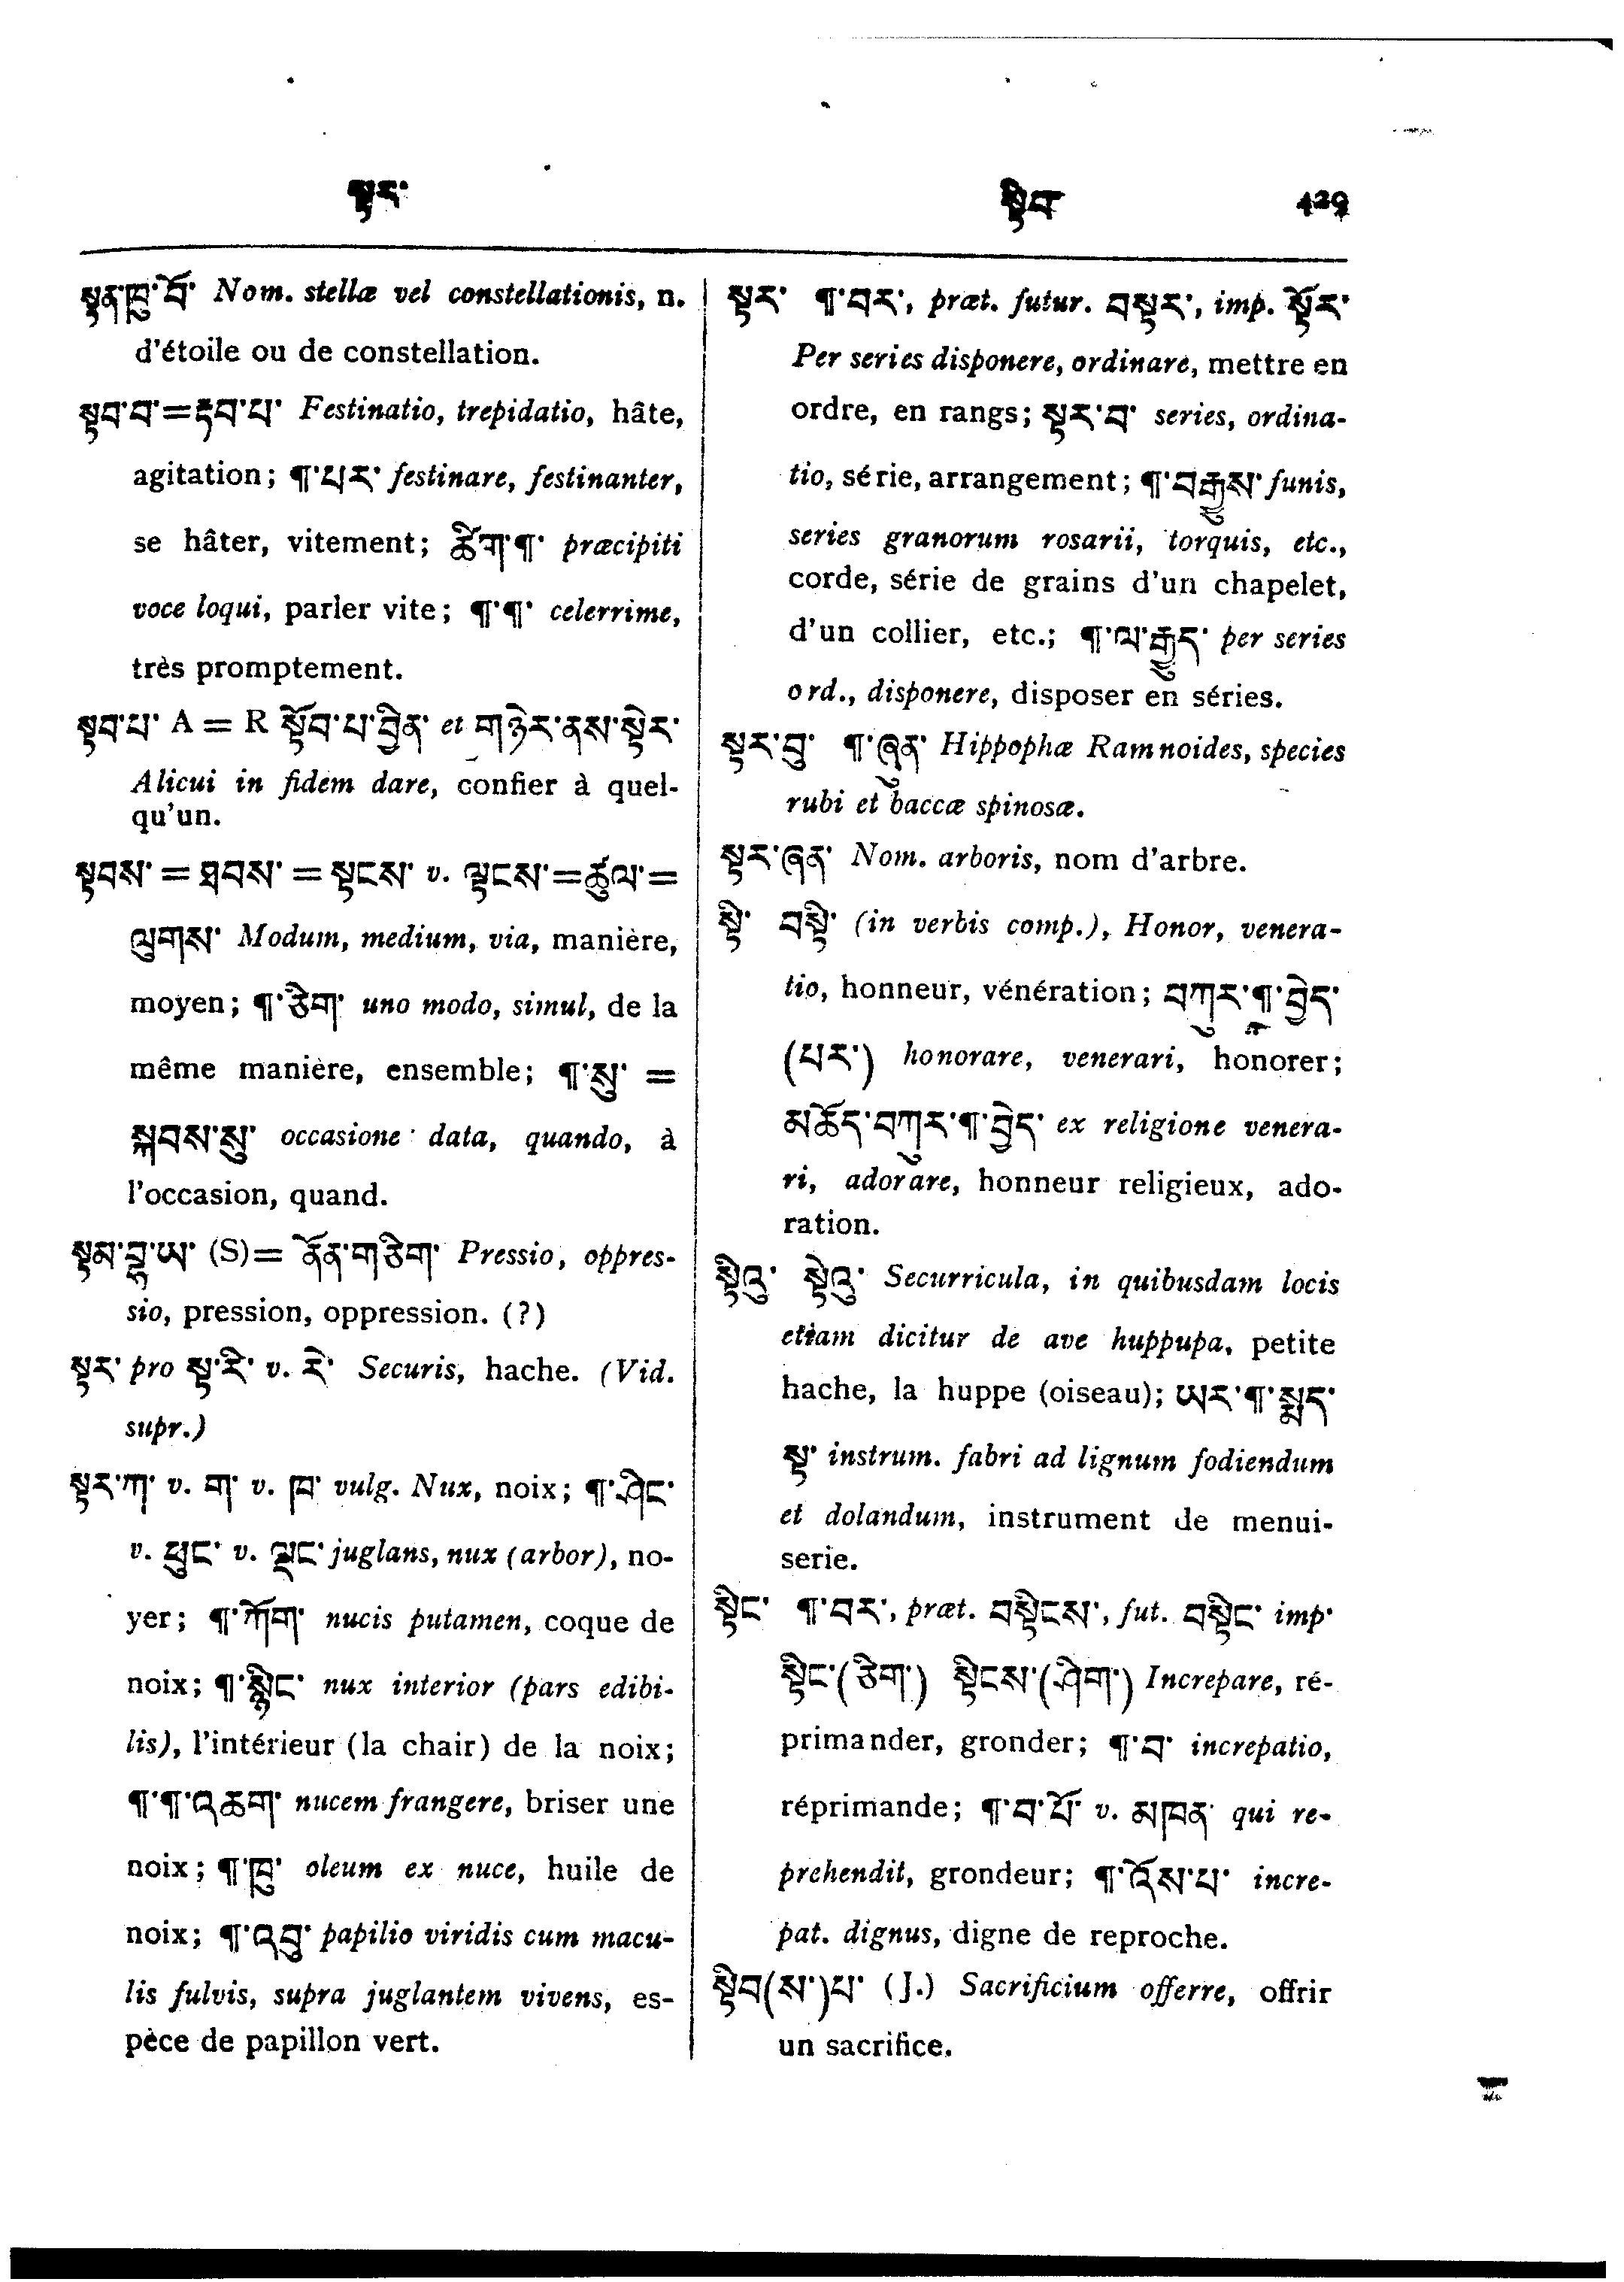 སྟར་
སྟིབ
429
སྟན་ཁྲུ་བོ་ Nom. stellæ vel constellationis, n.
d'étoile ou de constellation.
སྟབ་བ་=རྟབ་པ་ Festinatio, trepidatio, hâte,
agitation; ¶་པར་ festinare, festinanter,
se hâter, vitement; ཚིག་¶་ præcipiti
voce loqui, parler vite; ¶་¶་ celerrime,
très promptement.
སྟབ་པ་ A = R སྟོབ་པ་བྱིན་ et གཉེར་ནས་སྟེར་
Alicui in fidem dare, confier à quel-
qu'un.
སྟབས་ = ཐབས་ = སྟངས་ v. ལྟངས་=ཚུལ་=
ལུགས་ Modum, medium, via, manière,
moyen; ¶་ཅིག་ uno modo, simul, de la
même manière, ensemble; ¶་སུ་ =
སྐབས་སུ་ occasione data, quando, à
l'occasion, quand.
སྟམ་བྷ་ཡ་ (S)= ནོན་གཅིག་ Pressio, oppres-
sio, pression, oppression. (?)
སྟར་ pro སྟ་རི་ v. རེ་ Securis, hache. (Vid.
supr.)
སྟར་ཀ་ v. ག་ v. ཁ་ vulg. Nux, noix; ¶་ཤིང་
v. ཕུང་ v. ལྡང་ juglans, nux (arbor), no-
yer; ¶་ཀོག་ nucis putamen, coque de
noix; ¶་སྙིང་ nux interior (pars edibi-
lis), l'intérieur (la chair) de la noix;
¶་¶་འཆག་ nucem frangere, briser une
noix; ¶་ཁྲུ་ oleum ex nuce, huile de
noix; ¶་འབུ་ papilio viridis cum macu-
lis fulvis, supra juglantem vivens, es-
pèce de papillon vert.
སྟར་ ¶་བར་, præt. futur. བསྟར་, imp. སྟོར་
Per series disponere, ordinare, mettre en
ordre, en rangs; སྟར་བ་ series, ordina-
tio, série, arrangement; ¶་བརྒྱུས་ funis,
series granorum rosarii, torquis, etc.,
corde, série de grains d'un chapelet,
d'un collier, etc.; ¶་ལ་རྒྱུད་ per series
ord., disponere, disposer en séries.
སྟར་བུ་ ¶་ཞུན་ Hippophæ Ramnoides, species
rubi et baccæ spinosæ.
སྟར་ཞན་ Nom. arboris, nom d'arbre.
སྟི་ བསྟི་ (in verbis comp.), Honor, venera-
tio, honneur, vénération; བཀུར་¶་བྱེད་
(པར་) honorare, venerari, honorer;
མཆོད་བཀུར་¶་བྱེད་ ex religione venera-
ri, adorare, honneur religieux, ado-
ration.
སྟིའུ་ སྟེའུ་ Securricula, in quibusdam locis
etiam dicitur de ave huppupa, petite
hache, la huppe (oiseau); ཡར་¶་སྨད་
སྟ་ instrum. fabri ad lignum fodiendum
et dolandum, instrument de menui-
serie.
སྟིང་ ¶་བར་, præt. བསྟིངས་, fut. བསྟིང་ imp·
སྟིང་(ཅིག་) སྟིངས་(ཤིག་) Increpare, ré-
primander, gronder; ¶་བ་ increpatio,
réprimande; ¶་བ་པོ་ v. མཁན་ qui re-
prehendit, grondeur; ¶་འོས་པ་ incre-
pat. dignus, digne de reproche.
སྟིབ(ས་)པ་ (J.) Sacrificium offerre, offrir
un sacrifice.